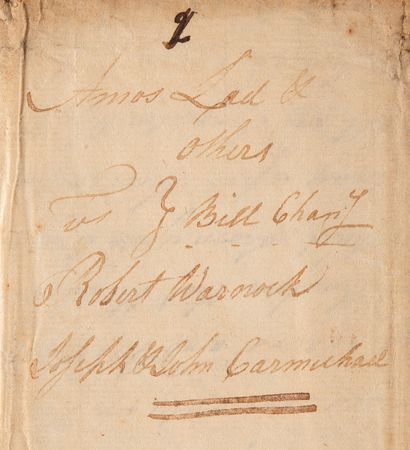 2
Amos Lad &
others
vs } Bill Chany
Robert Warnock
Joseph & John Carmichael